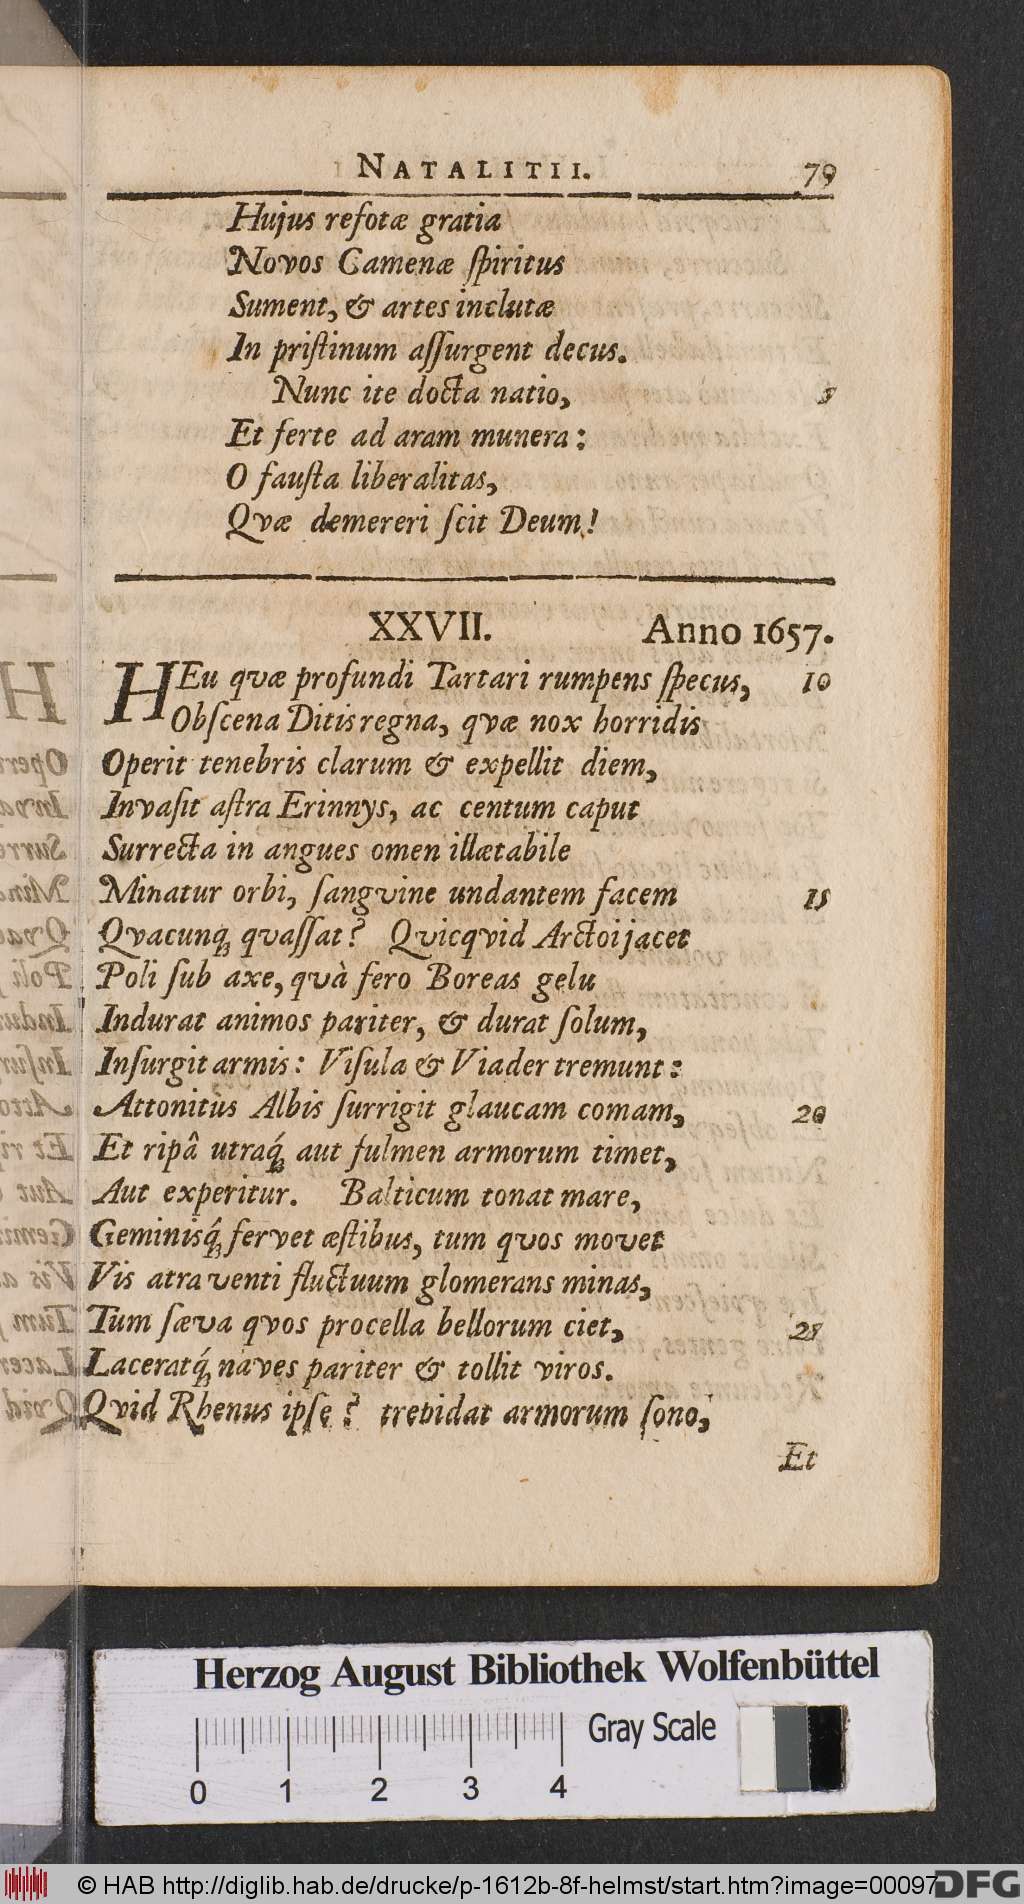 NATALITII. 79
Hujus refotæ gratia
Novos Camenæ ſpiritus
Sument, & artes inclutæ
In priſtinum aſſurgent decus.
Nunc ite docta natio, 5
Et ferte ad aram munera:
O fauſta liberalitas,
Qvæ demereri ſcit Deum!
XXVII. Anno 1657.
HEu qvæ profundi Tartari rumpens ſpecus, 10
Obſcena Ditis regna, qvæ nox horridis
Operit tenebris clarum & expellit diem,
Invaſit aſtra Erinnys, ac centum caput
Surrecta in angues omen illætabile
Minatur orbi, ſangvine undantem facem 15
Qvacunq; qvaſſat? Qvicqvid Arctoi jacet
Poli ſub axe, qvà fero Boreas gelu
Indurat animos pariter, & durat ſolum,
Inſurgit armis: Viſula & Viader tremunt:
Attonitus Albis ſurrigit glaucam comam, 20
Et ripâ utraq́; aut fulmen armorum timet,
Aut experitur. Balticum tonat mare,
Geminisq́; fervet æſtibus, tum qvos movet
Vis atra venti fluctuum glomerans minas,
Tum ſæva qvos procella bellorum ciet, 25
Laceratq́; naves pariter & tollit viros.
Qvid Rhenus ipſe? trepidat armorum ſono,
Et
Herzog August Bibliothek Wolfenbüttel
0 1 2 3 4 Gray Scale
© HAB http://diglib.hab.de/drucke/p-1612b-8f-helmst/start.htm?image=00097
DFG